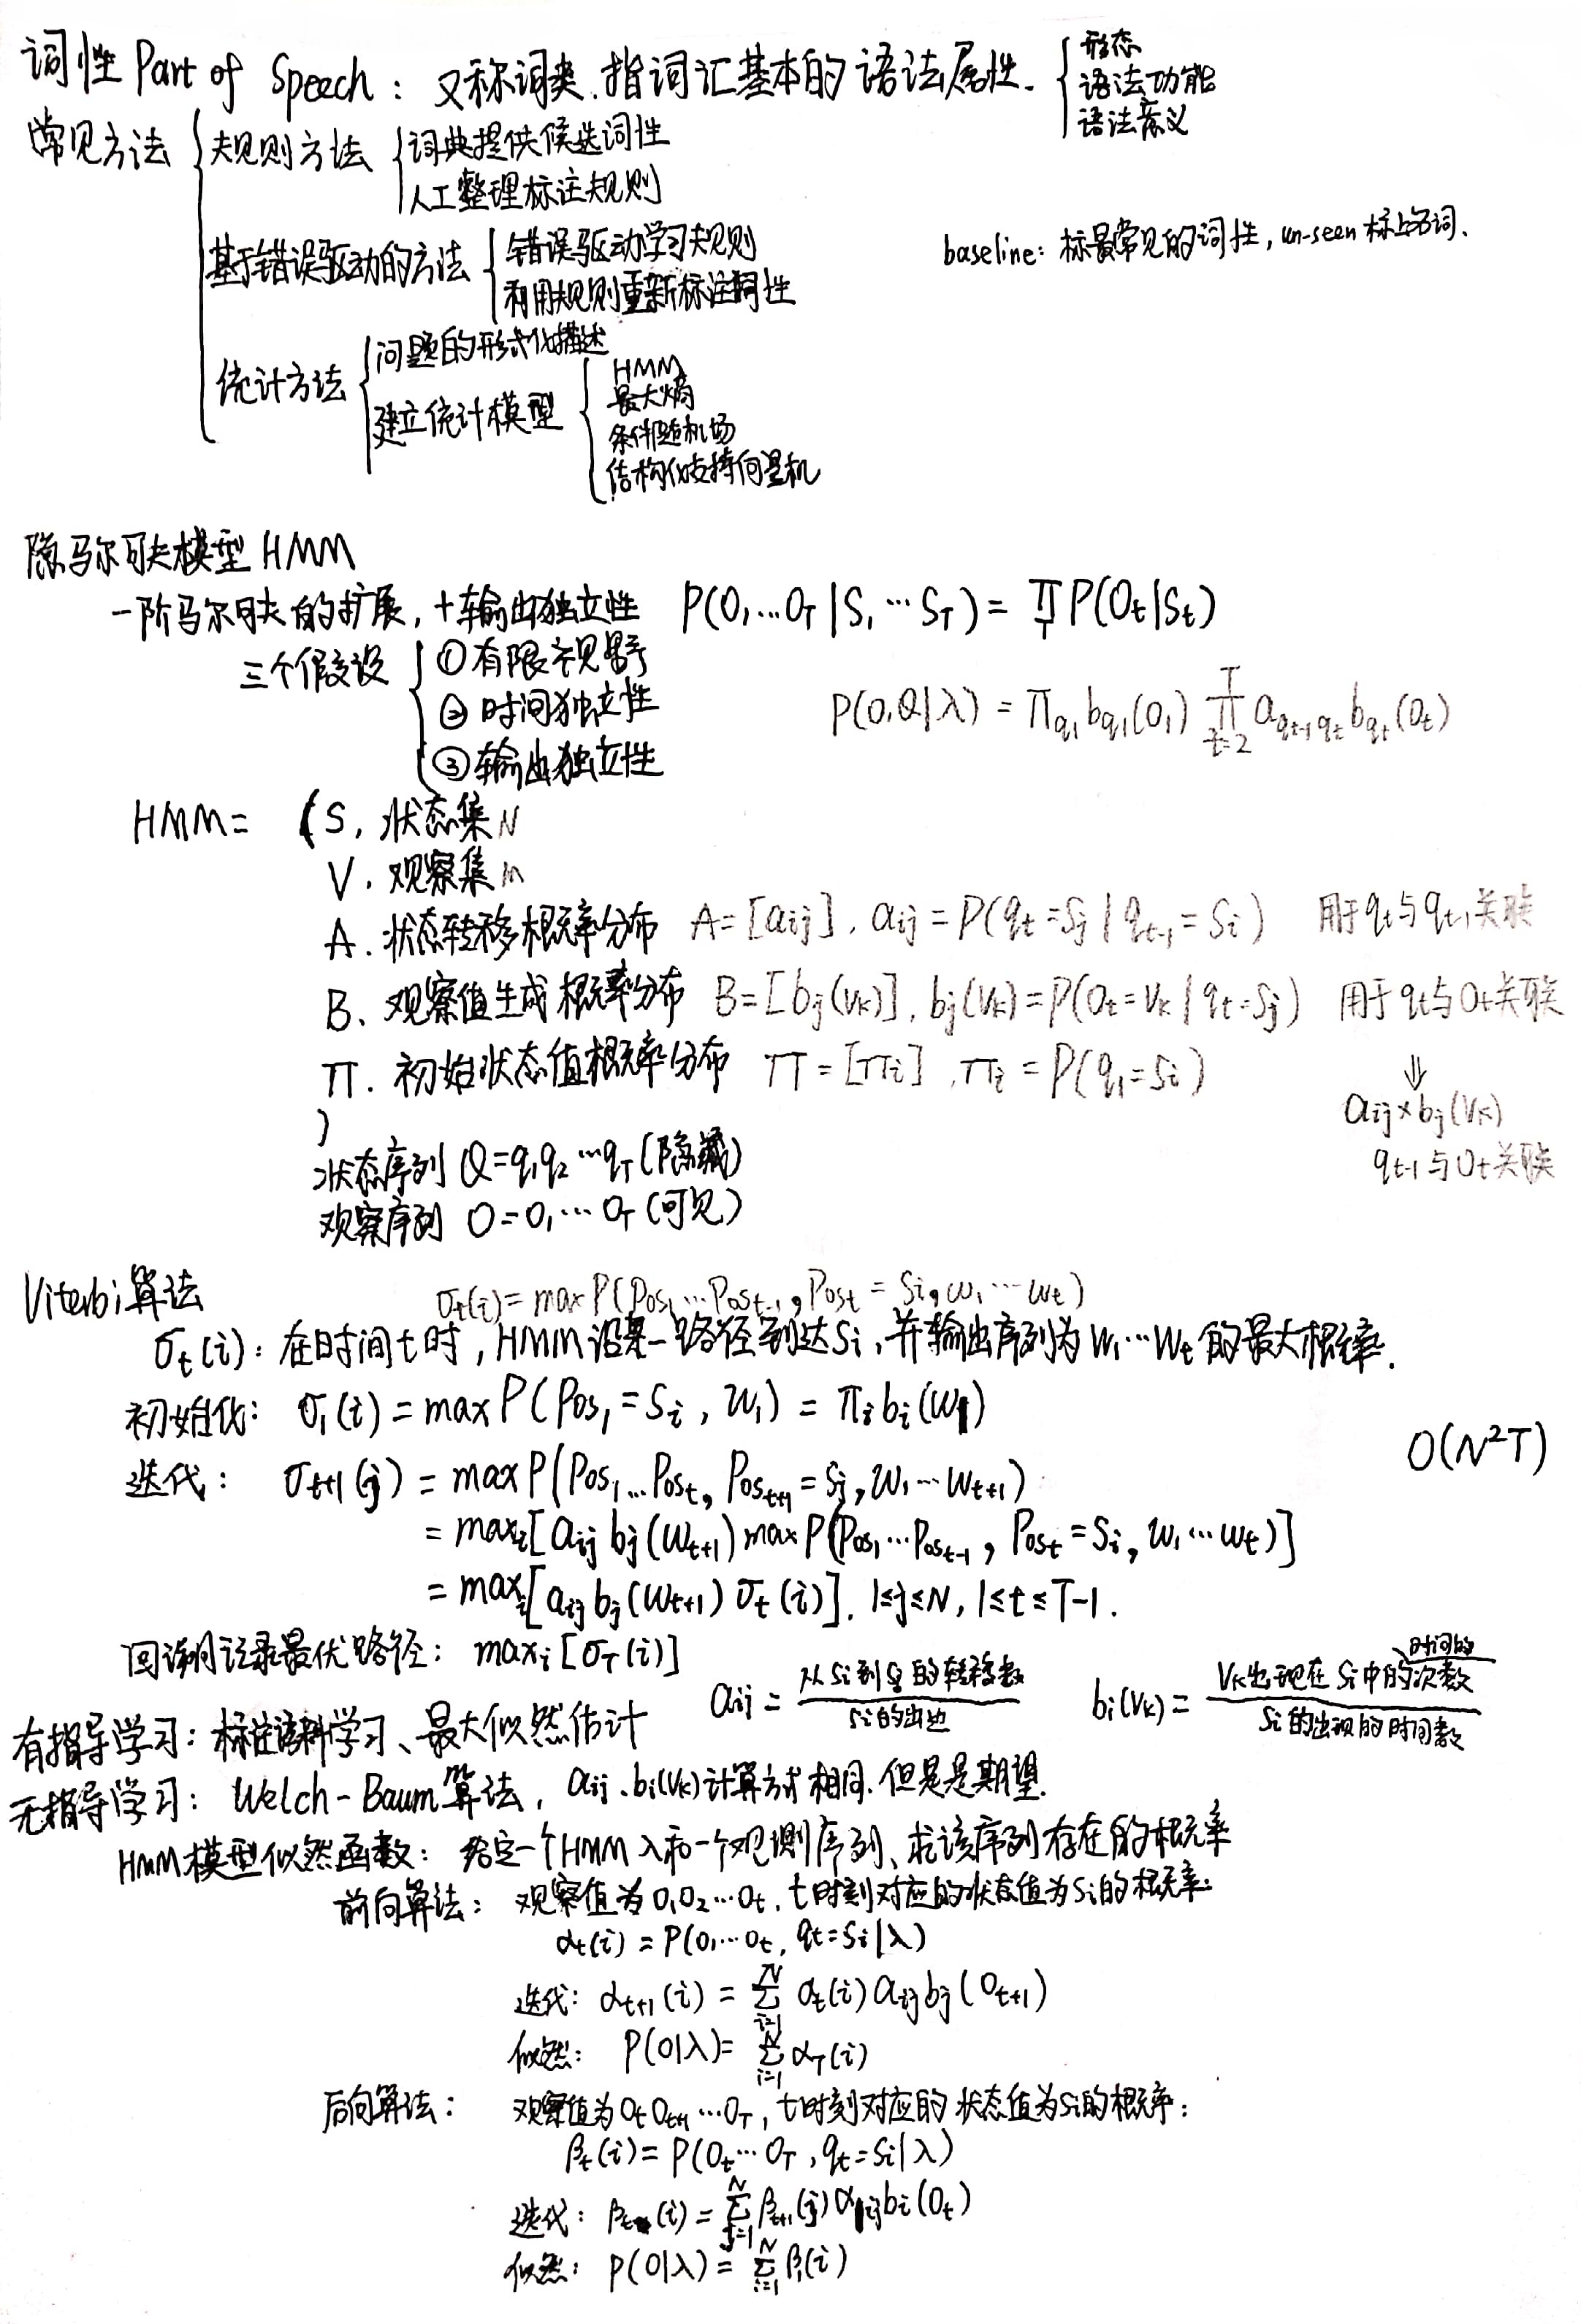 词性 Part of Speech: 又称词类. 指词汇基本的语法属性. { 形态
语法功能
语法意义
常见方法 { 规则方法 { 词典提供候选词性
人工整理标注规则
基于错误驱动的方法 { 错误驱动学习规则
利用规则重新标注词性
baseline: 标最常见的词性, un-seen 标上名词.
统计方法 { 问题的形式化描述
建立统计模型 { HMM
最大熵
条件随机场
结构化支持向量机
隐马尔可夫模型 HMM
一阶马尔可夫的扩展, +输出独立性 P(O₁…O_T|S₁…S_T) = ∏_T P(O_t|S_t)
三个假设 { ①有限视野
②时间独立性
③输出独立性
P(O,Q|λ) = π_{q₁} b_{q₁}(O₁) ∏_{t=2}^{T} a_{q_{t-1}q_t} b_{q_t}(O_t)
HMM= (S, 状态集 N
V. 观察集 m
A. 状态转移概率分布 A=[a_ij], a_ij = P(q_t=S_j | q_{t-1}=S_i) 用于q_t与q_{t-1}关联
B、观察值生成概率分布 B=[b_j(v_k)], b_j(v_k)=P(O_t=v_k | q_t=S_j) 用于q_t与O_t关联
π. 初始状态值概率分布 π=[π_i], π_i = P(q₁=S_i) ⇓
) a_ij×b_j(v_k)
q_{t-1}与O_t关联
状态序列 Q=q₁q₂…q_T(隐藏)
观察序列 O=O₁…O_T(可见)
Viterbi算法 σ_t(i)=max P(Pos₁…Pos_{t-1}, Pos_t=S_i, w₁…w_t)
σ_t(i): 在时间t时, HMM沿某一路径到达S_i, 并输出序列为W₁…W_t的最大概率.
初始化: σ₁(i) = max P(Pos₁=S_i, w₁) = π_i b_i(w₁)
O(N²T)
迭代: σ_{t+1}(j) = max P(Pos₁…Pos_t, Pos_{t+1}=S_j, w₁…w_{t+1})
= max_i[a_ij b_j(w_{t+1}) max P(Pos₁…Pos_{t-1}, Pos_t=S_i, w₁…w_t)]
= max_i[a_ij b_j(w_{t+1}) σ_t(i)]. 1≤j≤N, 1≤t≤T-1.
回溯记录最优路径: max_i[σ_T(i)]
a_ij = 从S_i到S_j的转移数 / S_i的出边 b_i(v_k) = V_k出现在S_i中的时间的次数 / S_i的出现的时间数
有指导学习: 标注语料学习、最大似然估计
无指导学习: Welch-Baum算法, a_ij、b_i(v_k)计算方式相同. 但是是期望.
HMM模型似然函数: 给定一个HMM λ和一个观测序列、求该序列存在的概率
前向算法: 观察值为O₁O₂…O_t. t时刻对应的状态值为S_i的概率:
α_t(i) = P(O₁…O_t, q_t=S_i|λ)
迭代: α_{t+1}(i) = ∑_{i=1}^{N} α_t(i) a_ij b_j(O_{t+1})
似然: P(O|λ)= ∑_{i=1}^{N} α_T(i)
后向算法: 观察值为O_tO_{t+1}…O_T, t时刻对应的状态值为S_i的概率:
β_t(i) = P(O_t…O_T, q_t=S_i|λ)
迭代: β_t(i) = ∑_{j=1}^{N} β_{t+1}(j) α_ij b_i(O_t)
似然: P(O|λ) = ∑_{i=1}^{N} β₁(i)